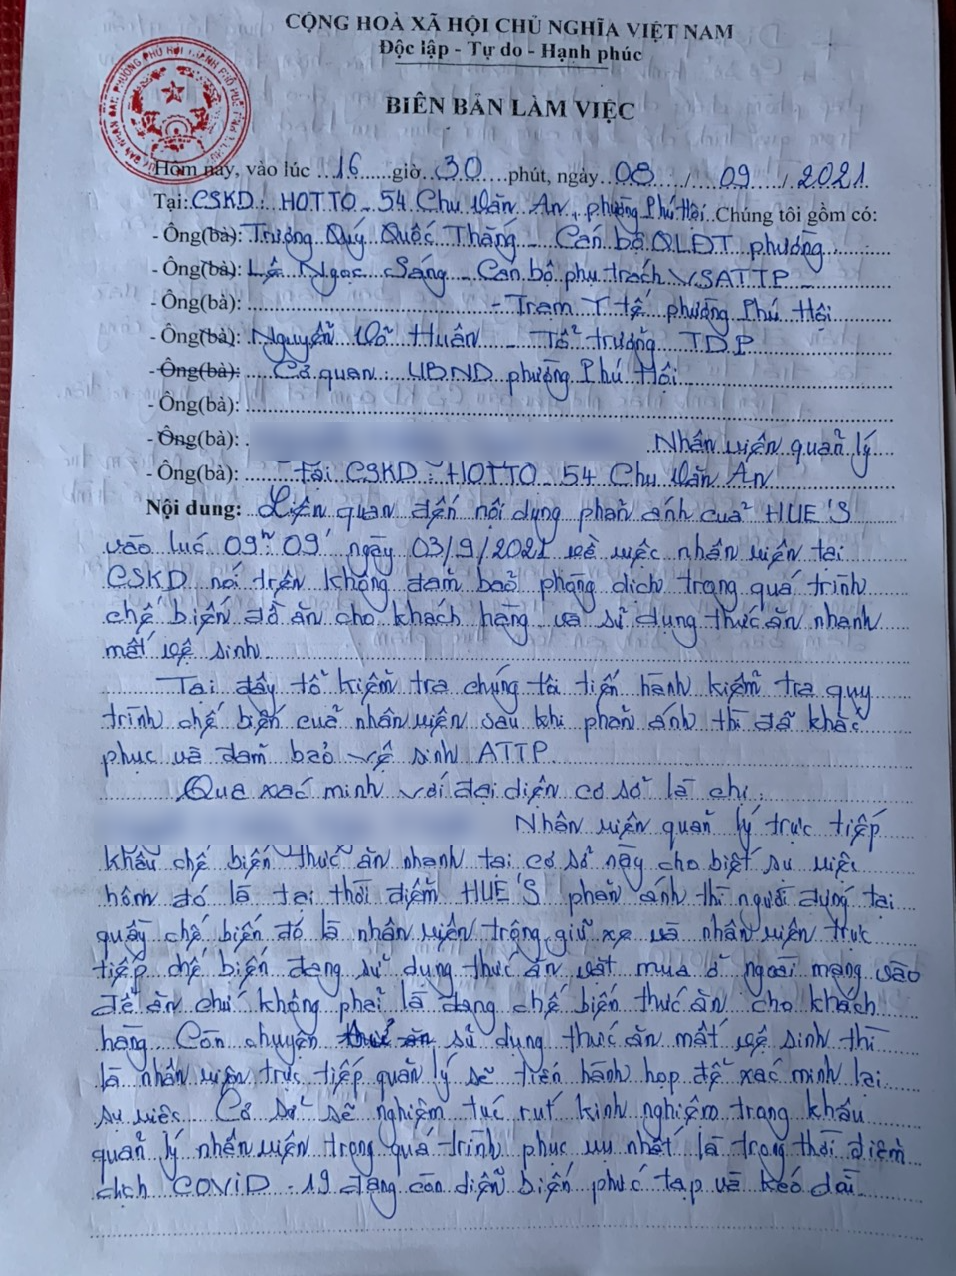 CỘNG HOÀ XÃ HỘI CHỦ NGHĨA VIỆT NAM
Độc lập - Tự do - Hạnh phúc
BIÊN BẢN LÀM VIỆC
Hôm nay, vào lúc 16 giờ 30 phút, ngày 08 / 09 / 2021
Tại: CSKD: HOTTO - 54 Chu Văn An, phường Phú Hội. Chúng tôi gồm có:
- Ông(bà): Trương Quý Quốc Thắng - Cán bộ QLĐT phường
- Ông(bà): Lê Ngọc Sáng - Cán bộ phụ trách VSATTP -
- Ông(bà): - Trạm Y tế phường Phú Hội
- Ông(bà): Nguyễn Võ Huân - Tổ trưởng TDP
- Ông(bà): Cơ quan: UBND phường Phú Hội
- Ông(bà):
- Ông(bà): Nhân viên quản lý
- Ông(bà): Tại CSKD: HOTTO 54 Chu Văn An
Nội dung: Liên quan đến nội dung phản ánh của HUE'S
vào lúc 09h 09' ngày 03/9/2021 về việc nhân viên tại
CSKD nói trên không đảm bảo phòng dịch trong quá trình
chế biến đồ ăn cho khách hàng và sử dụng thức ăn nhanh
mất vệ sinh
Tại đây tổ kiểm tra chúng tôi tiến hành kiểm tra quy
trình chế biến của nhân viên sau khi phản ánh thì đã khắc
phục và đảm bảo vệ sinh ATTP
Qua xác minh với đại diện cơ sở là chị:
Nhân viên quản lý trực tiếp
khẩu chế biến thức ăn nhanh tại cơ sở này cho biết sự việc
hôm đó là tại thời điểm HUE'S phản ánh thì người đứng tại
quầy chế biến đó là nhân viên trông giữ xe và nhân viên trực
tiếp chế biến đang sử dụng thức ăn vặt mua ở ngoài mang vào
để ăn chứ không phải là đang chế biến thức ăn cho khách
hàng. Còn chuyện thức ăn sử dụng thức ăn mất vệ sinh thì
là nhân viên trực tiếp quản lý sẽ tiến hành họp để xác minh lại
sự việc. Cơ sở sẽ nghiêm túc rút kinh nghiệm trong khâu
quản lý nhân viên trong quá trình phục vụ nhất là trong thời điểm
dịch COVID - 19 đang còn diễn biến phức tạp và kéo dài